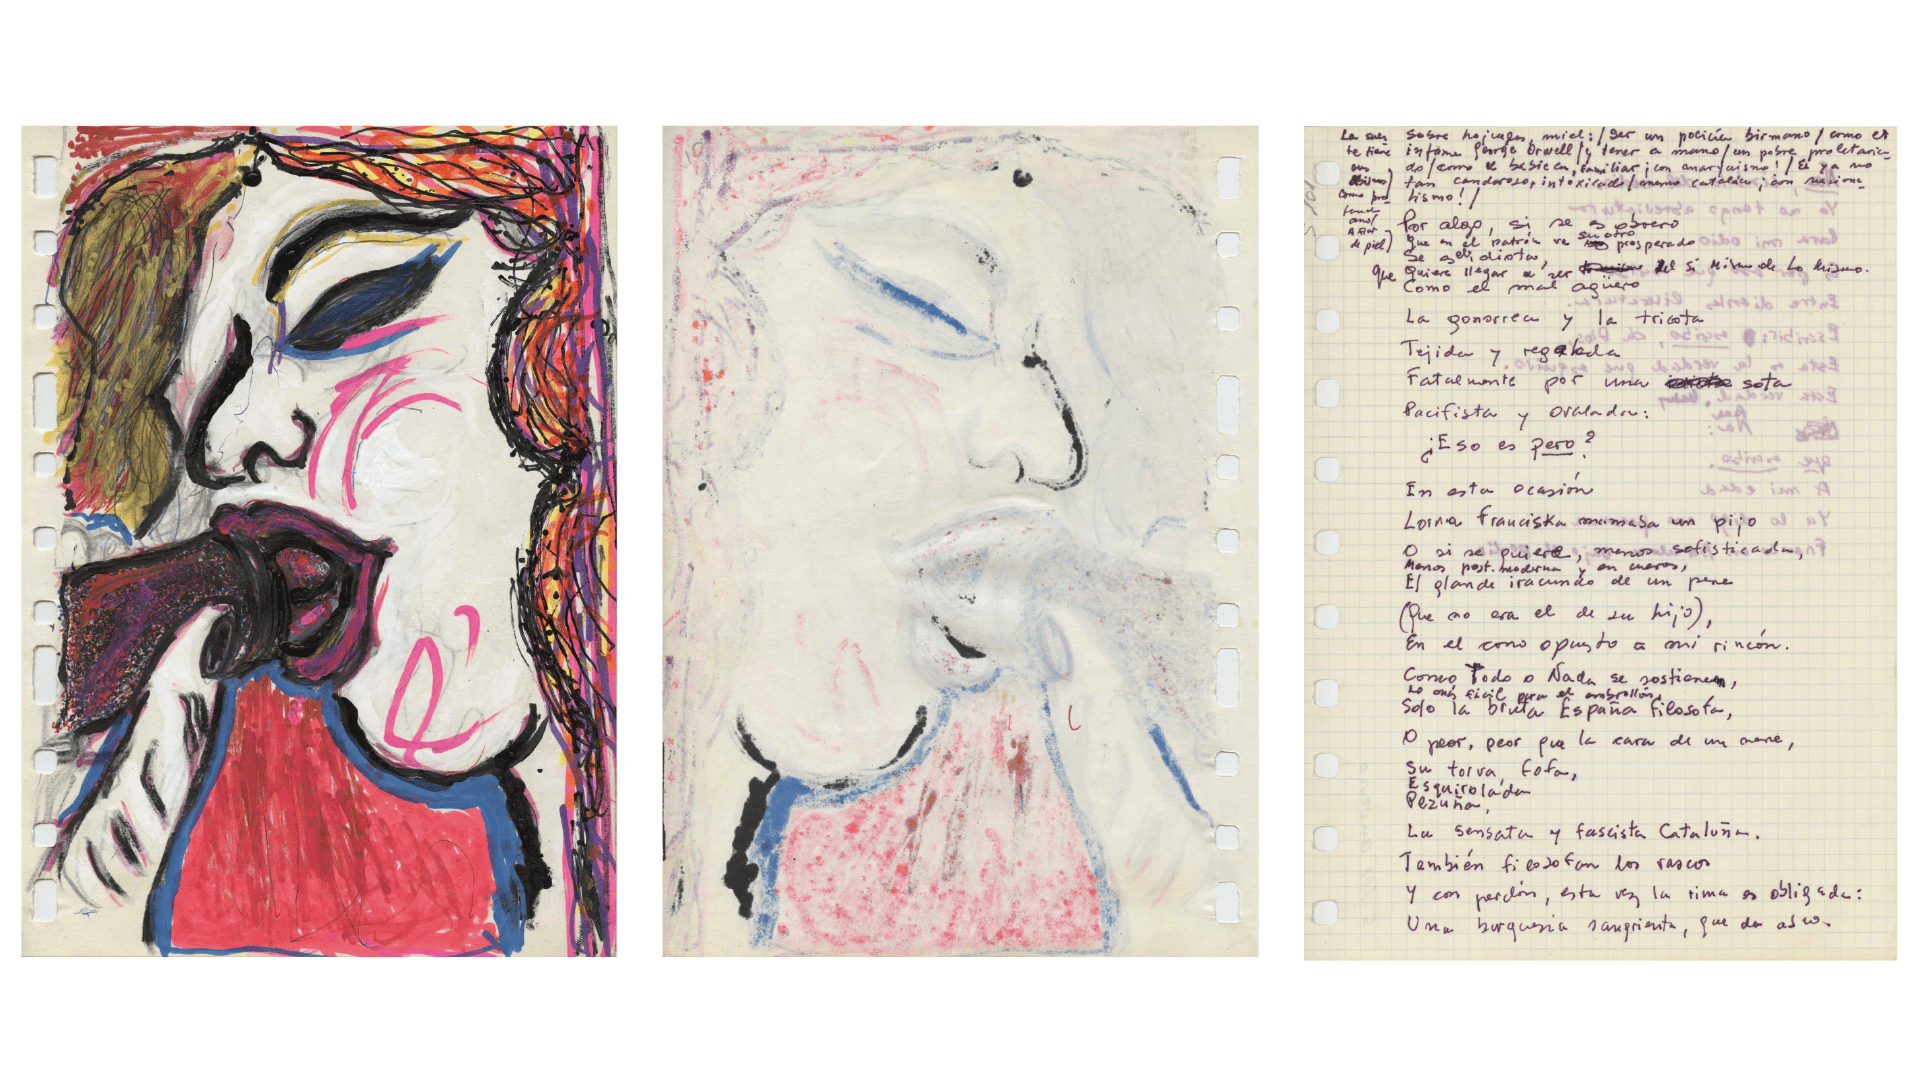 La suer
te tiene
sus
abismos
como pro
fundi-
dad
A flor
de piel)
sobre hojuelas, miel: / Ser un policía birmano / como el
infame George Orwell / y tener a mano / un pobre proletaria-
do / como de basica, familiar ¡con anarquismo! / Et ya no
tan candoroso, intoxicado / mano catalán, con naciona-
lismo! /
Por algo, si se es obrero
Que en el patrón ve su otro prosperado
Se es idiota,
Que Quiere llegar a ser del Sí Mismo de Lo Mismo.
Como el mal agüero
La gonorrea y la tricota
Tejida y regalada
Fatalmente por una sota
Pacifista y ovalada:
¿Eso es pero?
En esta ocasión
Lorna Franciska mamaba un pijo
O si se quiere, menos sofisticada,
Menos post-moderna y en cueros,
El glande iracundo de un pene
(Que no era el de su hijo),
En el cono opuesto a mi rincón.
Como Todo o Nada se sostienen,
Lo más fácil para el embrollón,
Solo la bruta España filosofa,
O peor, peor que la cara de un nene,
Su torva, fofa,
Esquirolada
Pezuña,
La sensata y fascista Cataluña.
También filosofan los vascos
Y con perdón, esta vez la rima es obligada:
Una burguesía sangrienta, que da asco.